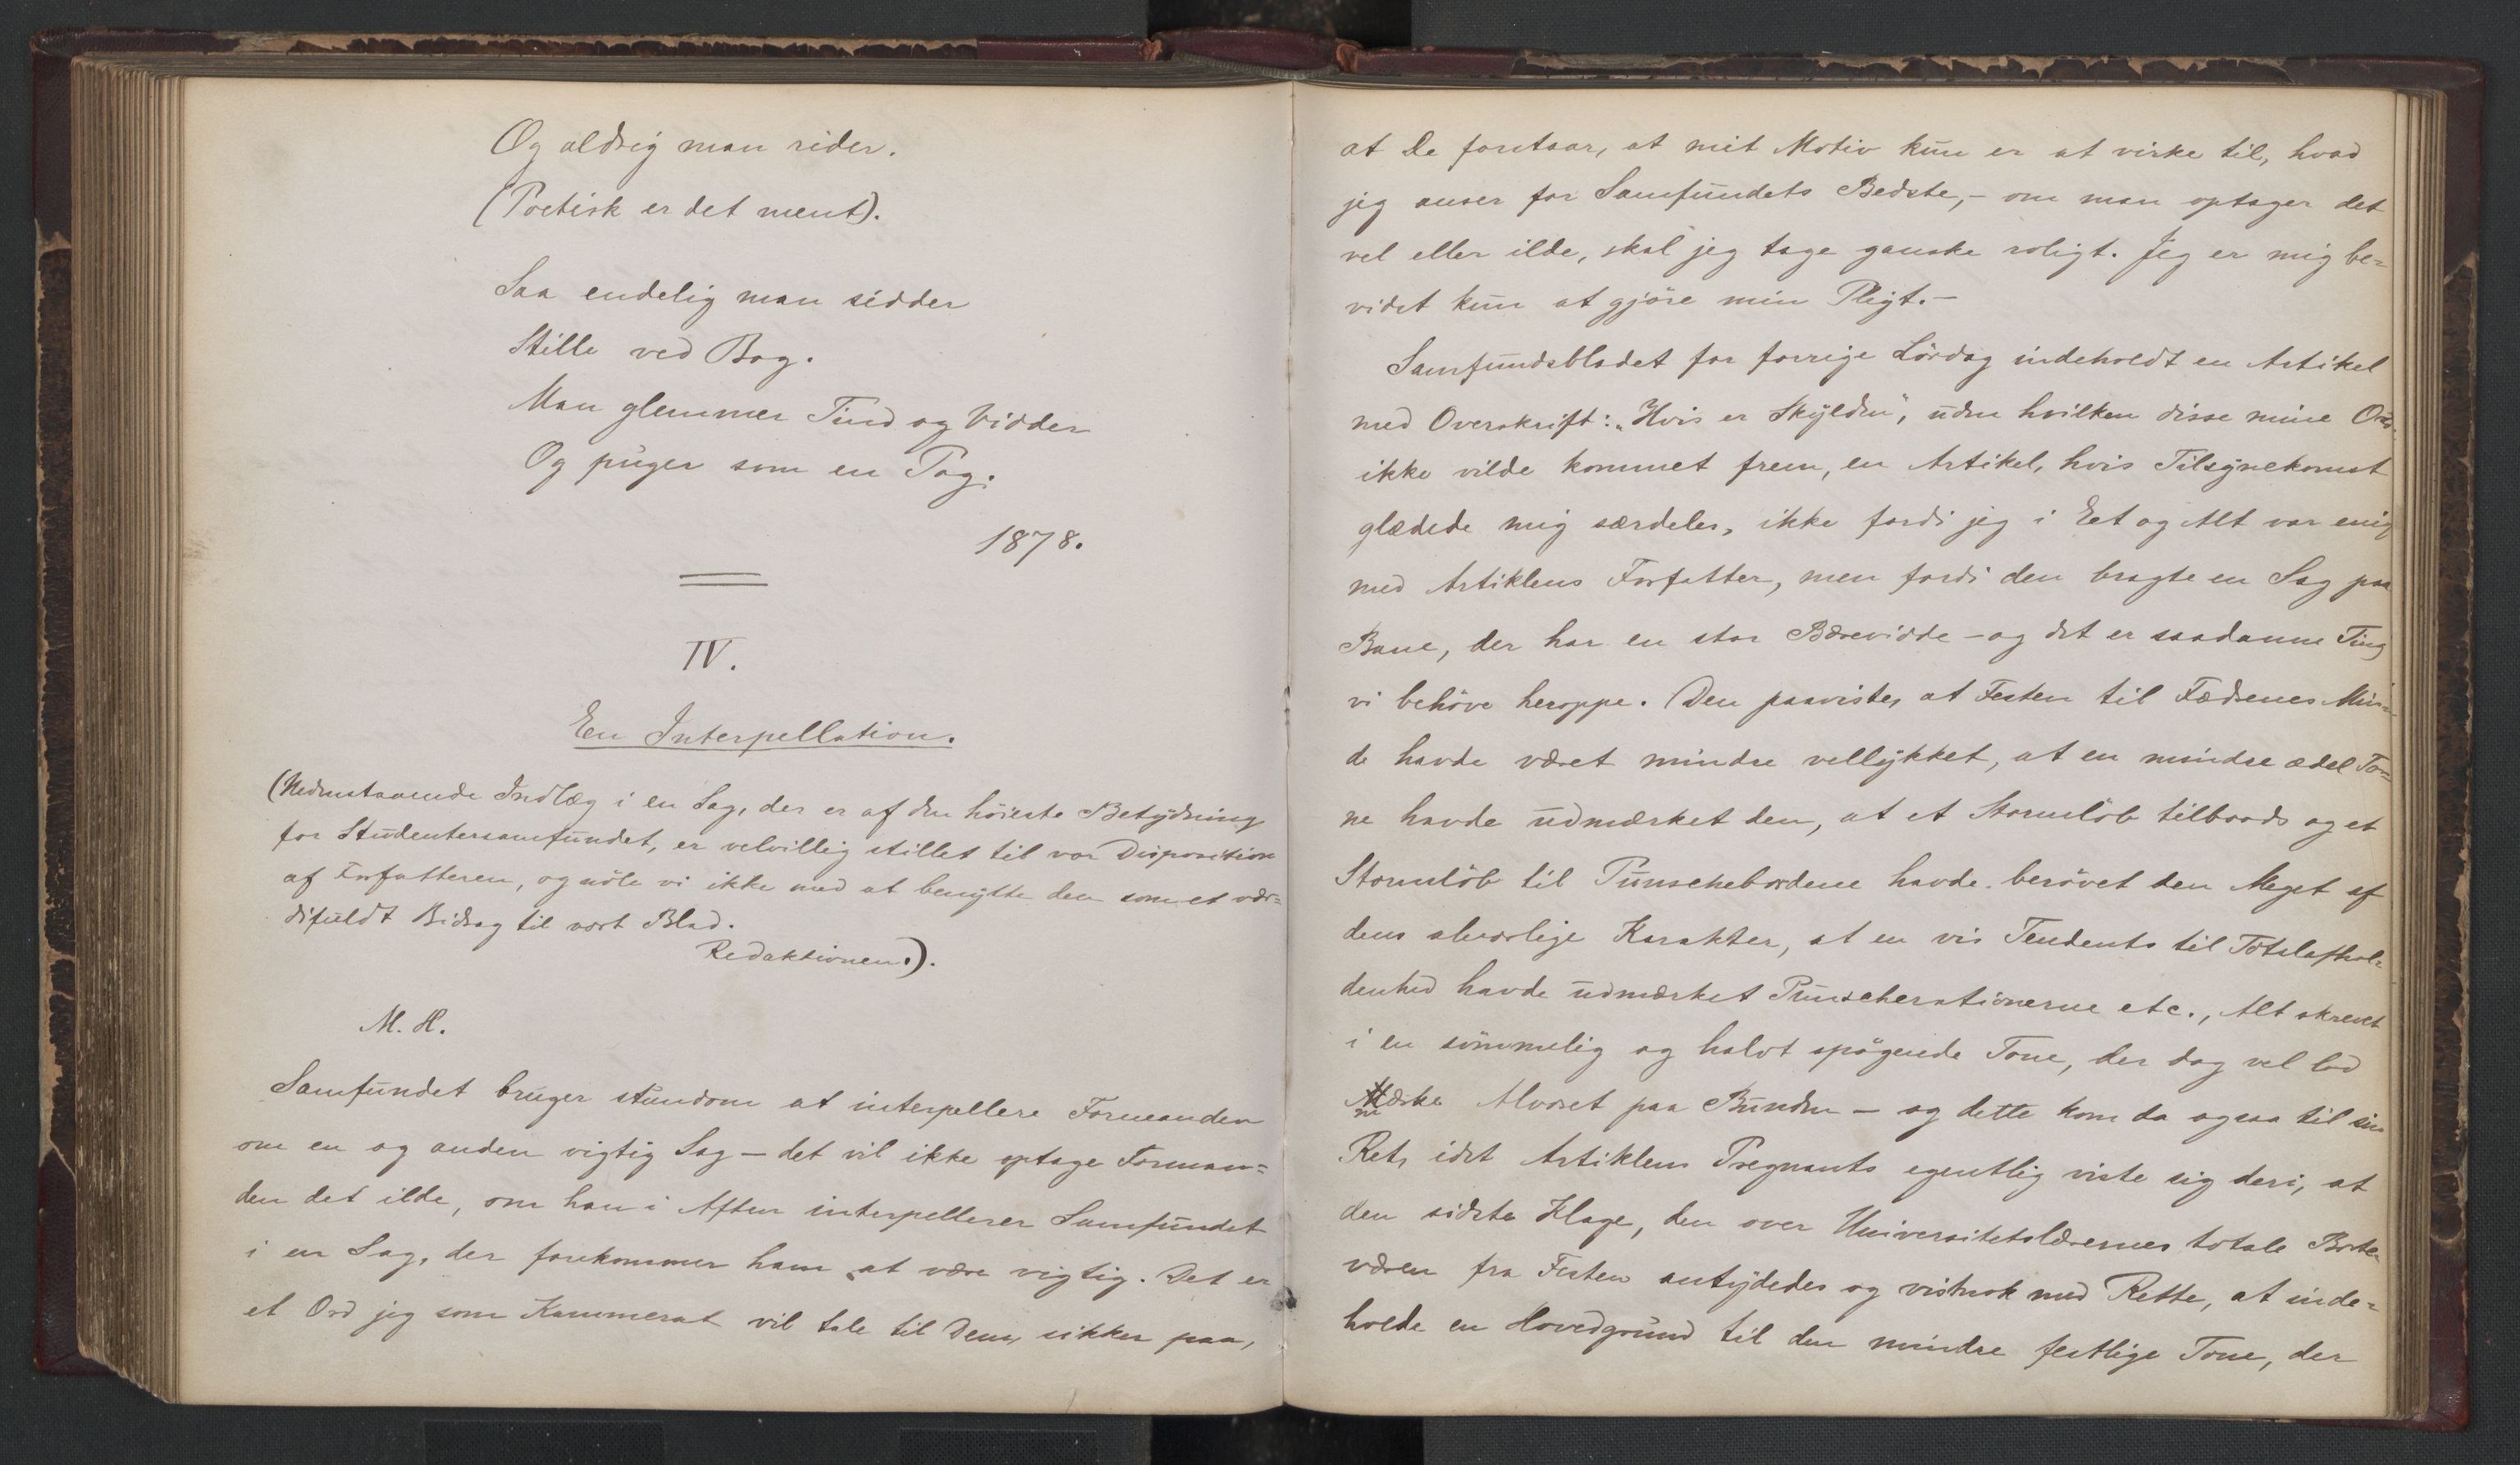 Og aldrig man rider.
(Poetisk er det ment).
Saa endelig man sidder
Stille ved Bog.
Man glemmer Tind og Vidder
Og puger som en Pog.
1878.
IV.
En Interpellation.
(Nedenstaaende Indlæg i en Sag, der er af den höieste Betydning
for Studentersamfundet, er velvillig stillet til vor Disposition
af Forfatteren, og nöle vi ikke med at benytte den som et vær=
difuldt Bidrag til vort Blad.
Redaktionen.).
M. H.
Samfundet bruger stundom at interpellere Formanden
om en og anden vigtig Sag – det vil ikke optage Forman=
den det ilde, om han i Aften interpellerer Samfundet
i en Sag, der forekommer ham at være vigtig. Det er
et Ord jeg som Kammerat vil tale til Dem, sikker paa,
at De forstaar, at mit Motiv kun er at virke til, hvad
jeg anser for Samfundets Bedste, – om man optager det
vel eller ilde, skal jeg tage ganske roligt. Jeg er mig be=
vidst kun at gjöre min Pligt. –
Samfundsbladet for forrige Lördag indeholdt en Artikel
med Overskrift: „Hvis er Skylden", uden hvilken disse mine Ord
ikke vilde kommet frem, en Artikel, hvis Tilsynekomst
glædede mig særdeles, ikke fordi jeg i Eet og Alt var enig
med Artiklens Forfatter, men fordi den bragte en Sag paa
Bane, der har en stor Bærevidde – og det er saadanne Ting
vi behöve heroppe. Den paaviste, at Festen til Fædrenes Min=
de havde været mindre vellykket, at en mindre ædel To=
ne havde udmærket den, at et Stormlöb tilbords og et
Stormlöb til Punschebordene havde berövet den Meget af
dens alvorlige Karakter, at en vis Tendents til Totalafhol=
denhed havde udmærket Punscherationerne etc., Alt skrevet
i en sömmelig og halvt spögende Tone, der dog vel lod
mærke Alvoret paa Bunden – og dette kom da ogsaa til sin
Ret, idet Artiklens Pregnants egentlig viste sig deri, at
den sidste Klage, den over Universitetslærernes totale Borte=
væren fra Festen antydedes og vistnok med Rette, at inde=
holde en Hovedgrund til den mindre festlige Tone, der